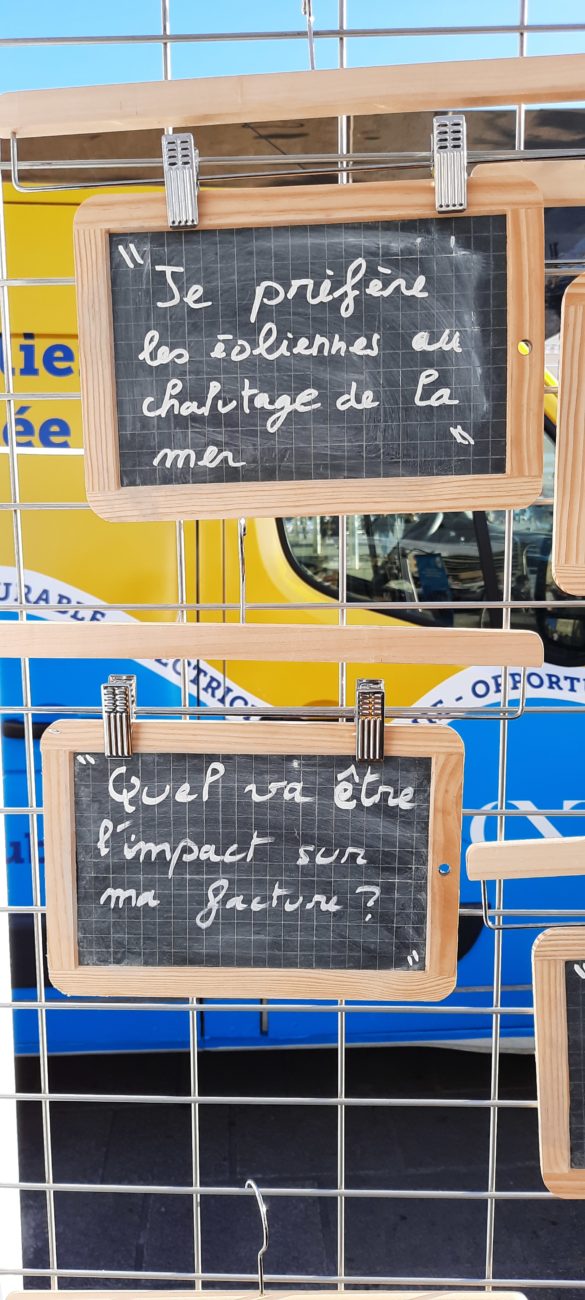 " Je préfère
les éoliennes au
chalutage de la
mer "
lie
ée
URABLE
ECTRIC
- OPPORT
" Quel va être
l'impact sur
ma facture ?
"